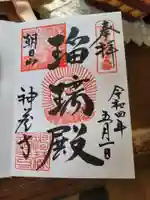 奉拝
令和四年五月一日
瑠璃殿
朝日山
神应寺